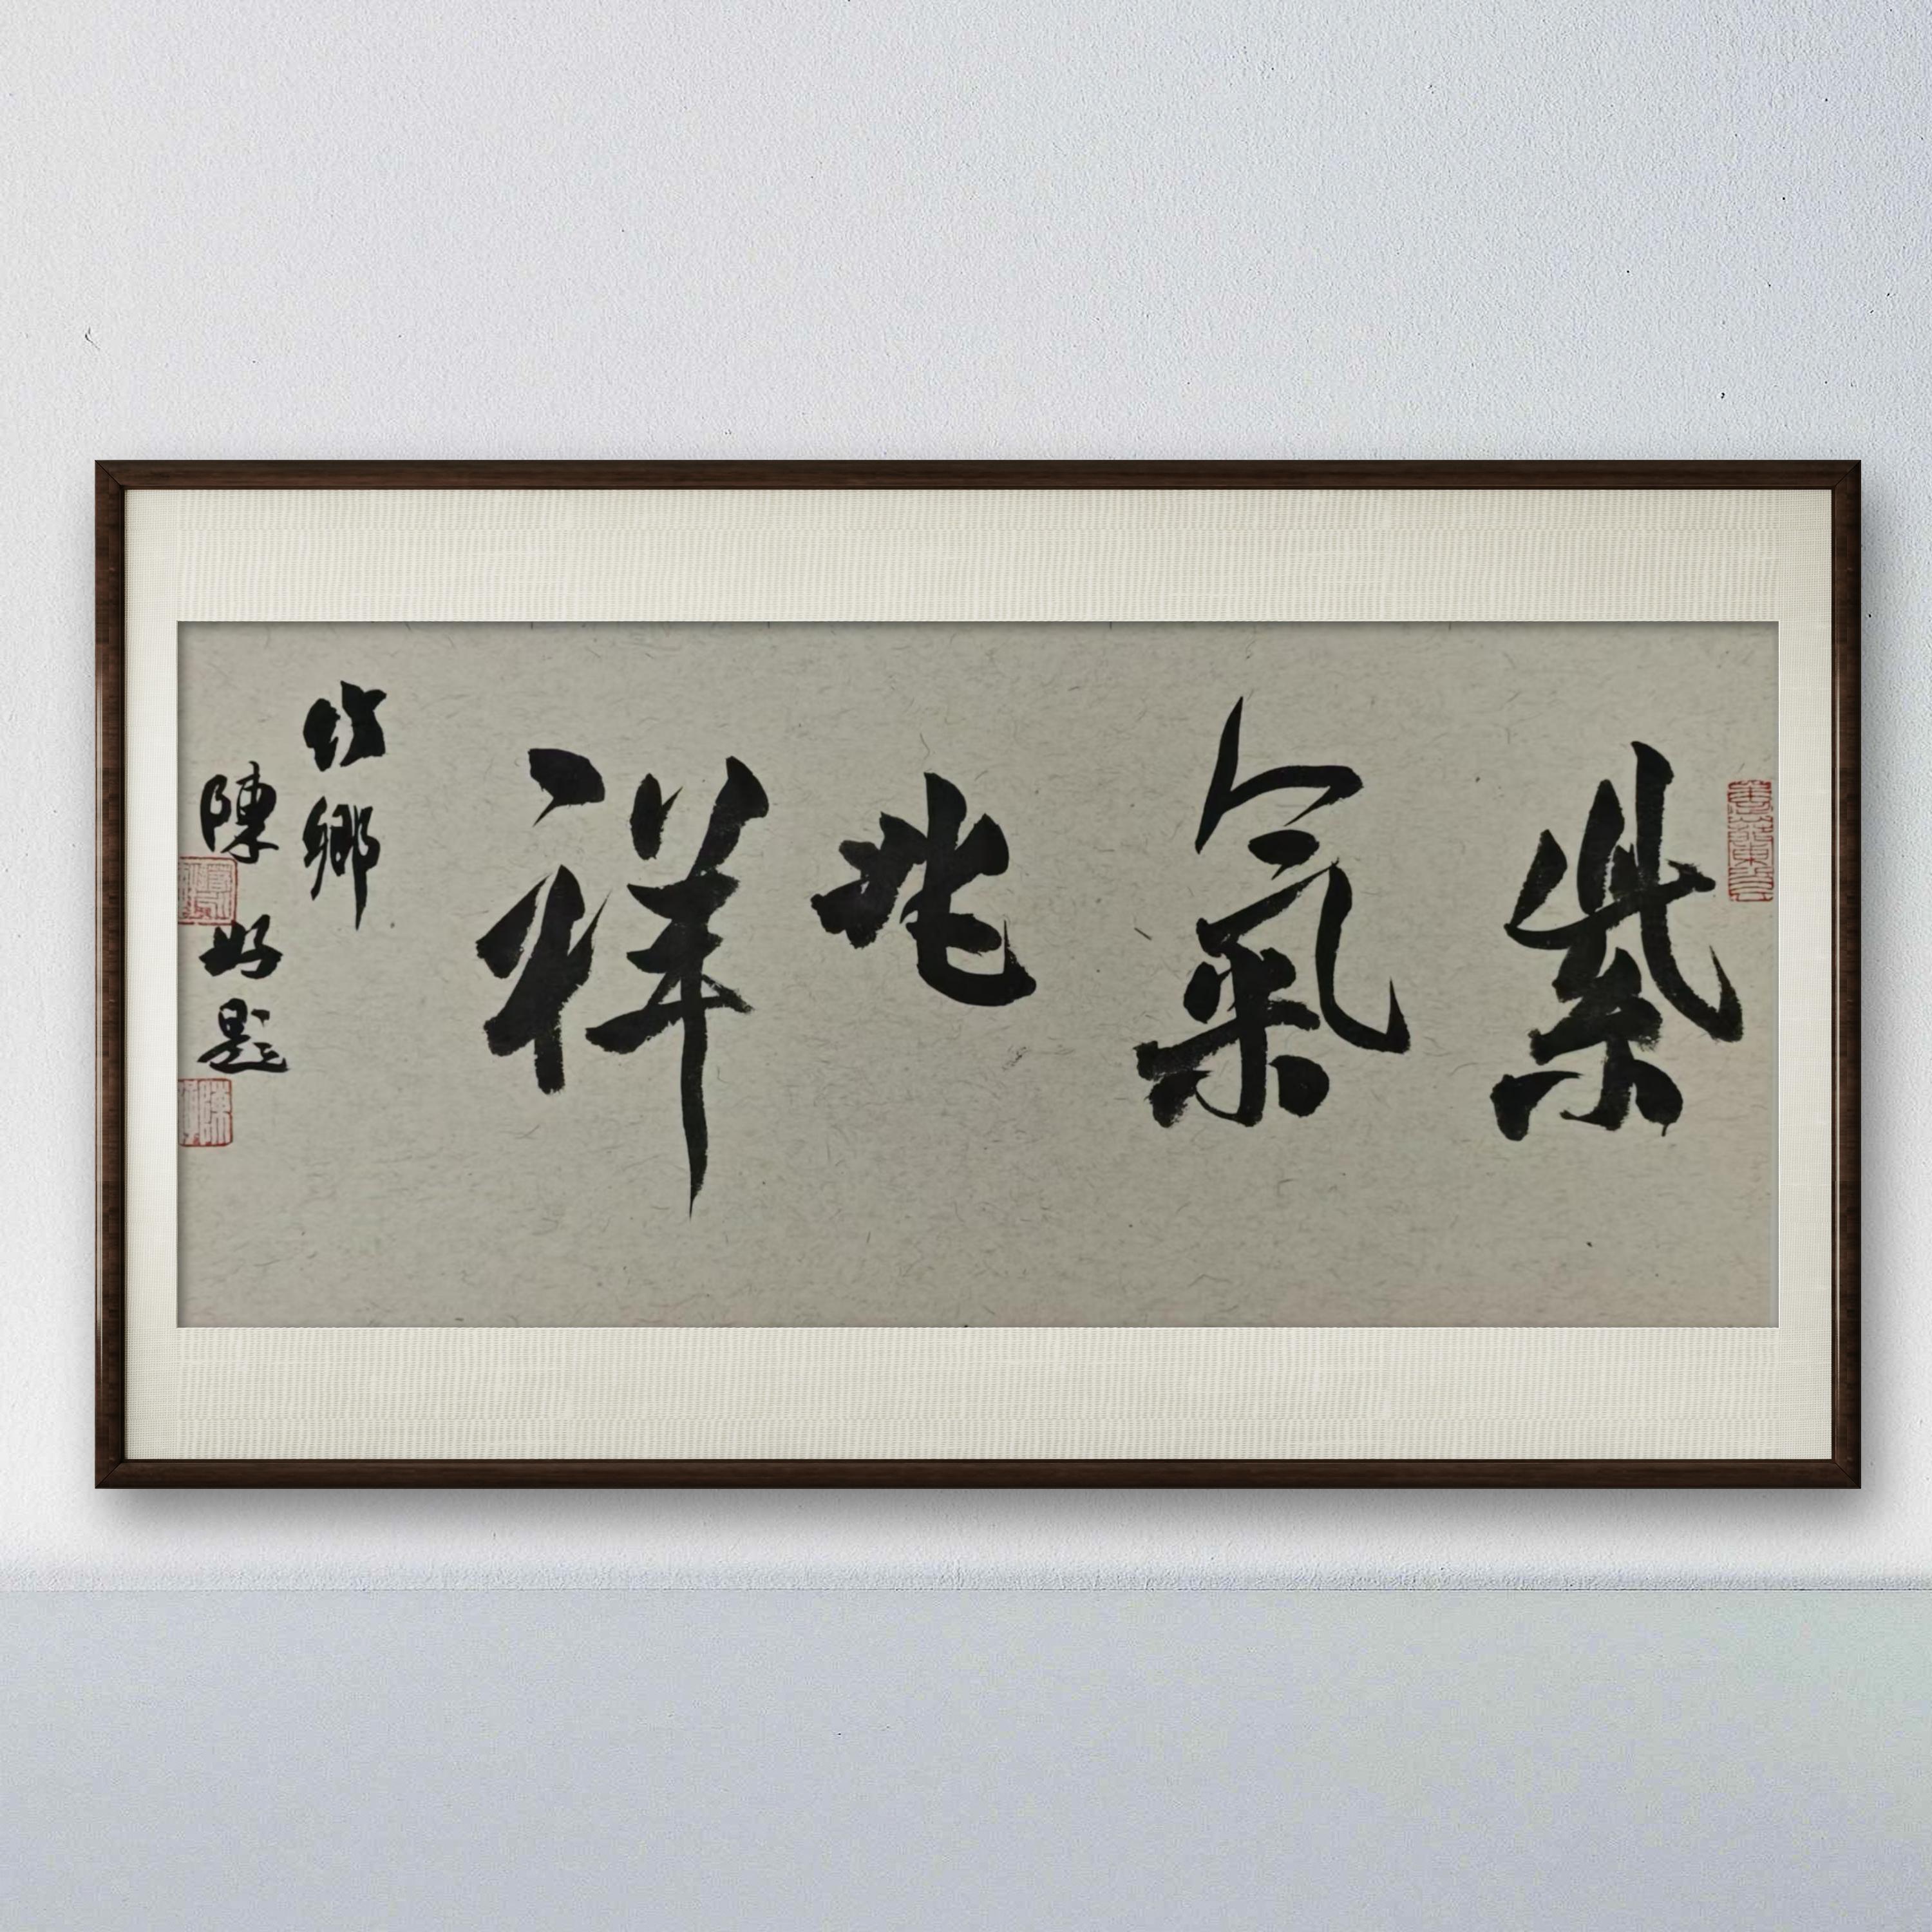 紫氣兆祥
鄉
陳好題